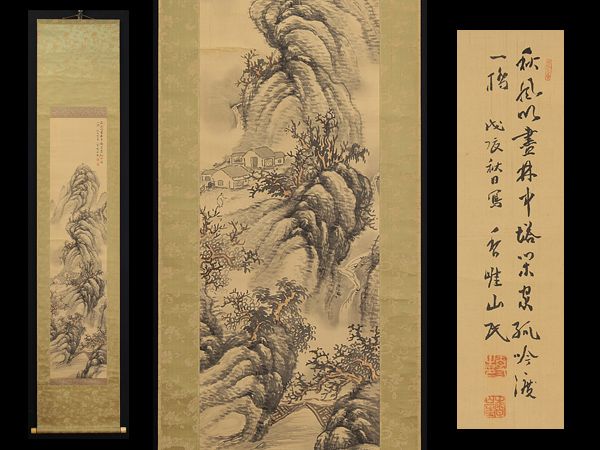 秋風吹盡林中塔孤吟渡
一橋 戊辰秋日寫 香畦山民